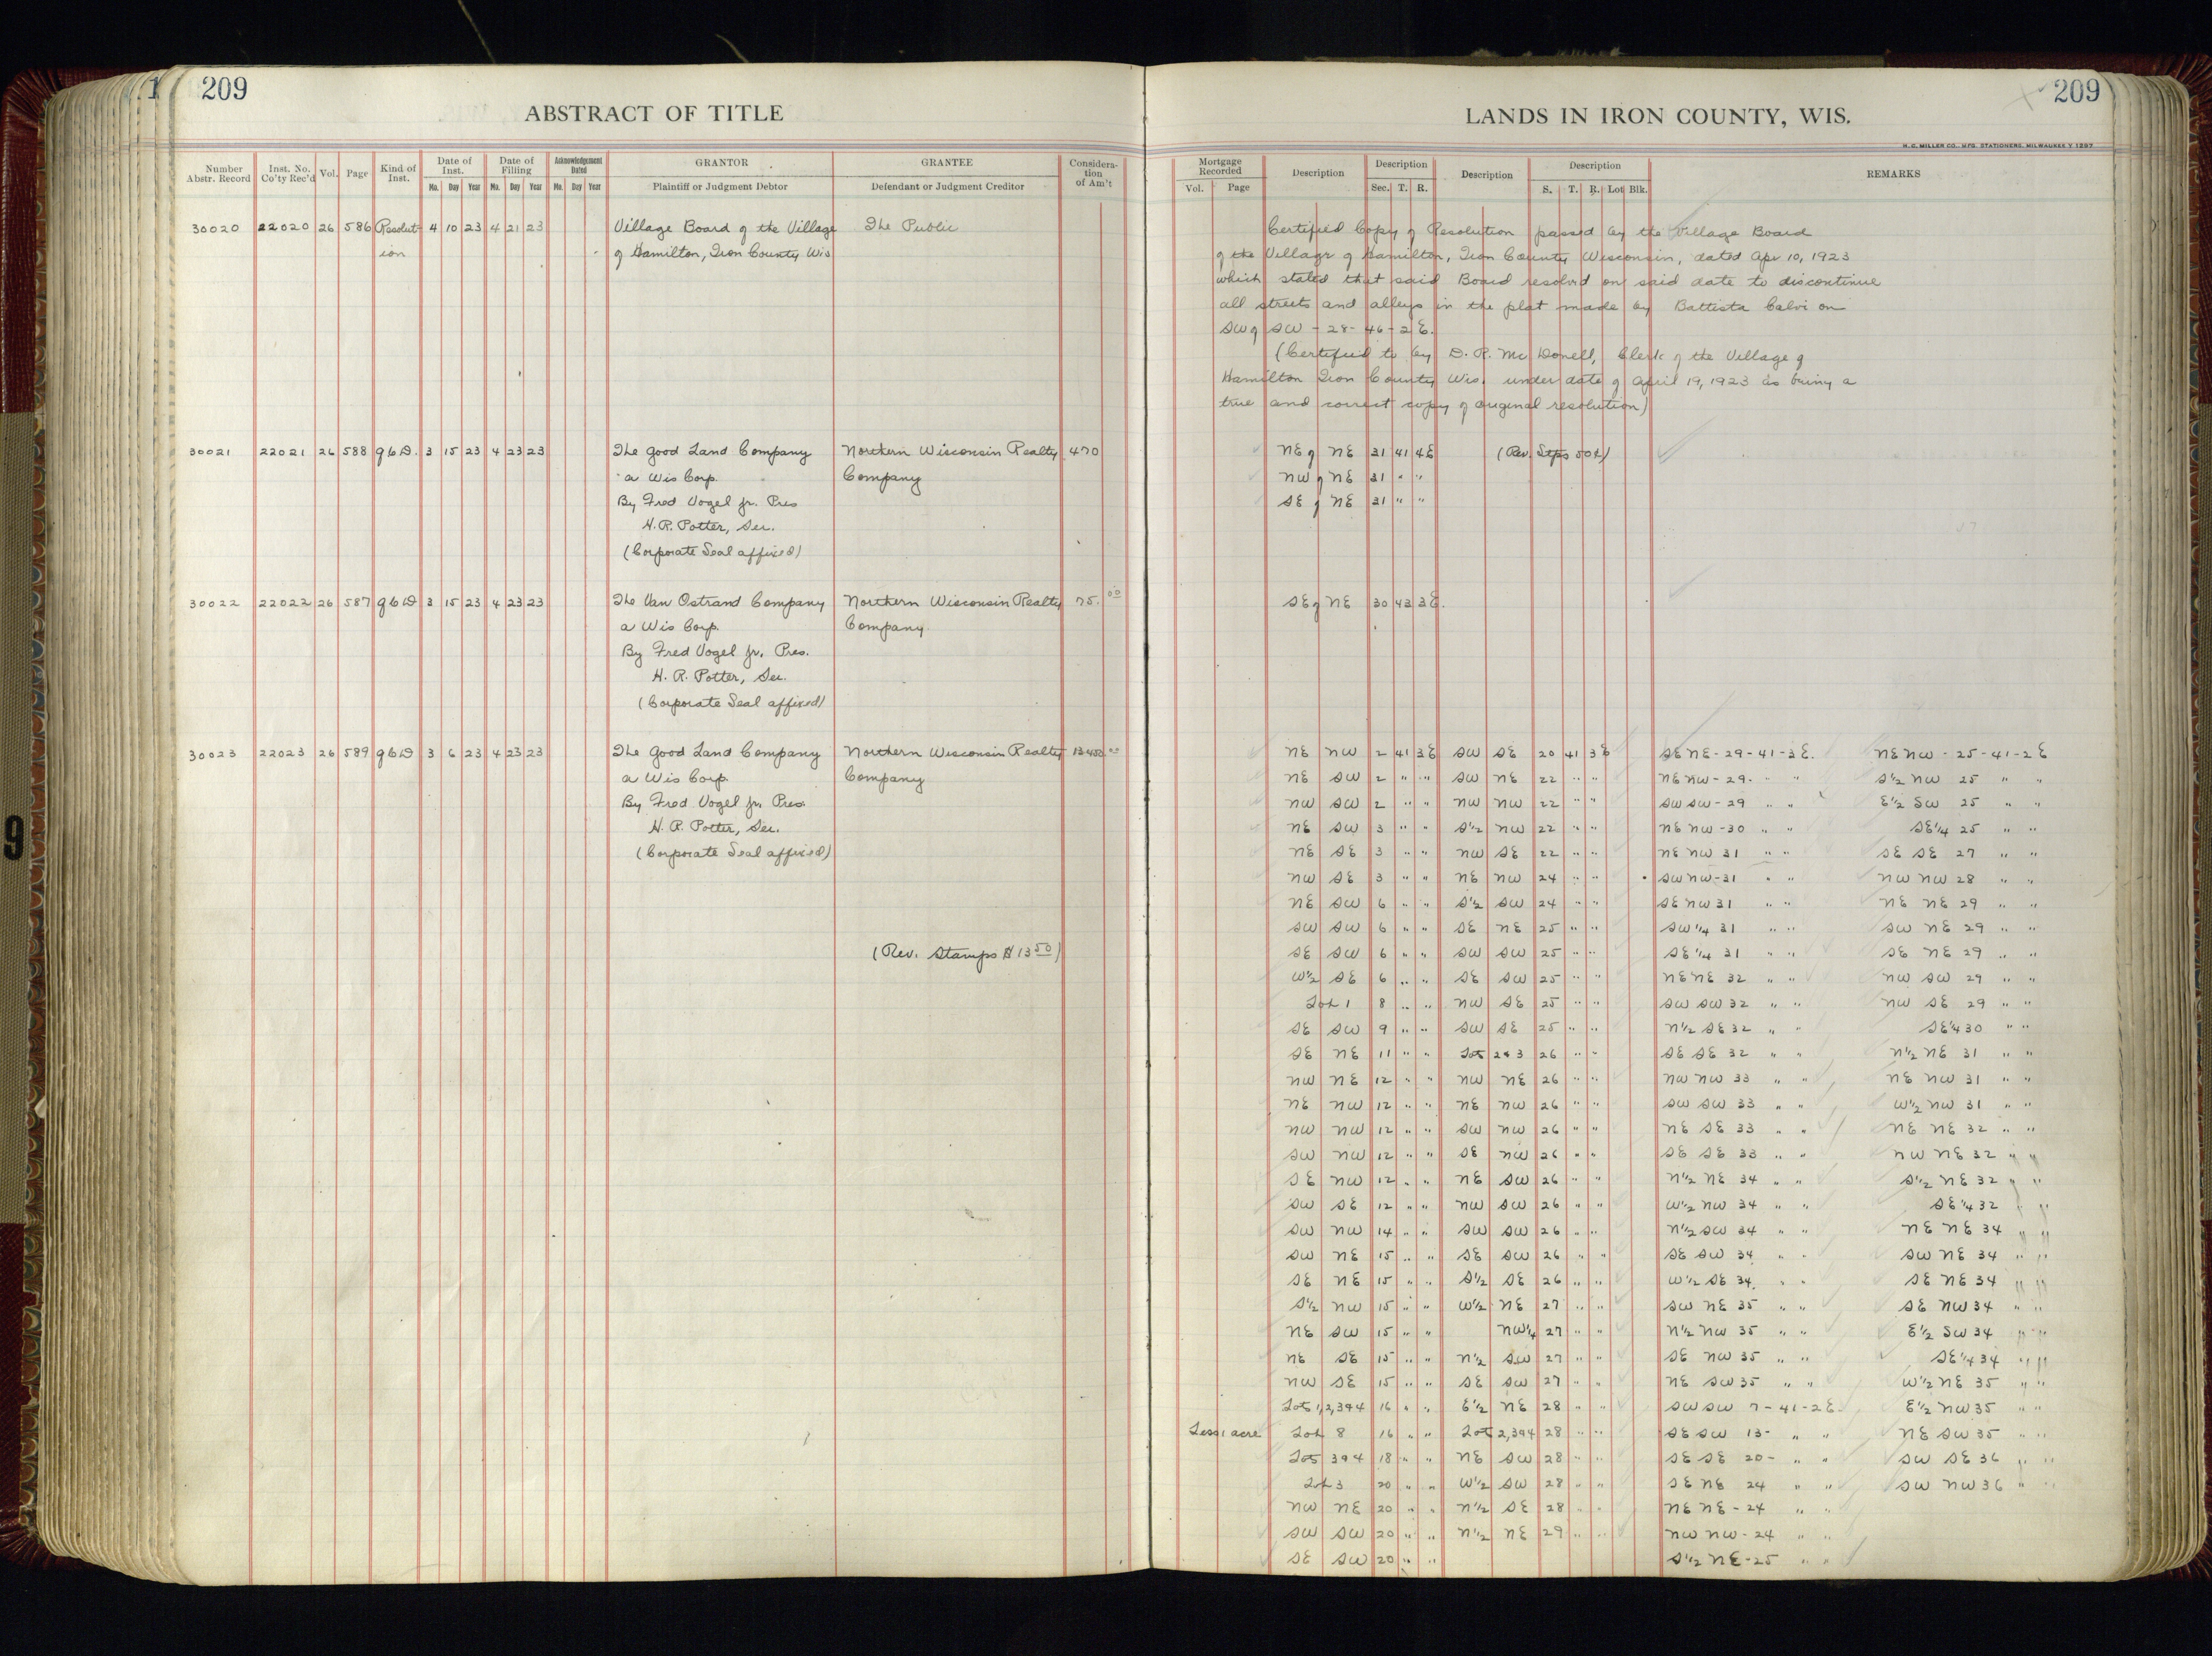 209
ABSTRACT OF TITLE
Number Abstr. Record
Inst. No. Co'ty Rec'd
Vol.
Page
Kind of Inst.
Date of Inst.
Mo. Day Year
Date of Filling
Mo. Day Year
Acknowledgement Dated
Mo. Day Year
GRANTOR
Plaintiff or Judgment Debtor
GRANTEE
Defendant or Judgment Creditor
Considera-tion of Am't
30020 22020 26 586 Resolut- 4 10 23 4 21 23 Village Board of the Village The Public
ion of Hamilton, Iron County Wis
30021 22021 26 588 q b D. 3 15 23 4 23 23 The Good Land Company Northern Wisconsin Realty 470
a Wis Corp. Company
By Fred Vogel Jr. Pres
H. R. Potter, Sec.
(Corporate Seal affixed)
30022 22022 26 587 q b D 3 15 23 4 23 23 The Van Ostrand Company Northern Wisconsin Realty 75.00
a Wis Corp. Company
By Fred Vogel Jr. Pres.
H. R. Potter, Sec.
(Corporate Seal affixed)
30023 22023 26 589 q b D 3 6 23 4 23 23 The Good Land Company Northern Wisconsin Realty
a Wis Corp. Company
By Fred Vogel Jr. Pres.
H. R. Potter, Sec.
(Corporate Seal affixed)
(Rev. Stamps $ 13 50)
9
209
LANDS IN IRON COUNTY, WIS.
H. C. MILLER CO., MFG. STATIONERS, MILWAUKEE
Mortgage Recorded
Vol. Page
Description
Description
Sec. T. R.
Description
Description
S. T. R. Lot Blk.
REMARKS
Certified Copy of Resolution passed by the Village Board
of the Village of Hamilton, Iron County Wisconsin, dated Apr 10, 1923
which stated that said Board resolved on said date to discontinue
all streets and alleys in the plat made by Battista Calvi on
SW of SW - 28 - 46 - 2 E.
(Certified to by D. R. Mc Donell, Clerk of the Village of
Hamilton Iron County Wis. under date of April 19, 1923 as being a
true and correct copy of original resolution)
NE of NE 31 41 4E (Rev. Stps 50¢)
NW of NE 31 " "
SE of NE 31 " "
SE of NE 30 43 3E.
NE NW 2 41 3E SW SE 20 41 3E SE NE - 29 - 41 - 3E. NE NW - 25 - 41 - 2E
NE SW 2 " " SW NE 22 " " NE NW - 29. " " S½ NW 25 " "
NW SW 2 " " NW NW 22 " " SW SW - 29 " " E½ SW 25 " "
NE SW 3 " " S½ NW 22 " " NE NW - 30 " " SE¼ 25 " "
NE SE 3 " " NW SE 22 " " NE NW 31 " " SE SE 27 " "
NW SE 3 " " NE NW 24 " " SW NW - 31 " " NW NW 28 " "
NE SW 6 " " S½ SW 24 " " SE NW 31 " " NE NE 29 " "
SW SW 6 " " SE NE 25 " " SW¼ 31 " " SW NE 29 " "
SE SW 6 " " SW SW 25 " " SE¼ 31 " " SE NE 29 " "
W½ SE 6 " " SE SW 25 " " NE NE 32 " " NW SW 29 " "
Lot 1 8 " " NW SE 25 " " SW SW 32 " " NW SE 29 " "
SE SW 9 " " SW SE 25 " " N½ SE 32 " " SE¼ 30 " "
SE NE 11 " " Lots 2 & 3 26 " " SE SE 32 " " N½ NE 31 " "
NW NE 12 " " NW NE 26 " " NW NW 33 " " NE NW 31 " "
NE NW 12 " " NE NW 26 " " SW SW 33 " " W½ NW 31 " "
NW NW 12 " " SW NW 26 " " NE SE 33 " " NE NE 32 " "
SW NW 12 " " SE NW 26 " " SE SE 33 " " NW NE 32 " "
SE NW 12 " " NE SW 26 " " N½ NE 34 " " S½ NE 32 " "
SW SE 12 " " NW SW 26 " " W½ NW 34 " " SE¼ 32 " "
SW NW 14 " " SW SW 26 " " N½ SW 34 " " NE NE 34 " "
SW NE 15 " " SE SW 26 " " SE SW 34 " " SW NE 34 " "
SE NE 15 " " S½ SE 26 " " W½ SE 34 " " SE NE 34 " "
S½ NW 15 " " W½ NE 27 " " SW NE 35 " " SE NW 34 " "
NE SW 15 " " NW¼ 27 " " N½ NW 35 " " E½ SW 34 " "
NE SE 15 " " N½ SW 27 " " SE NW 35 " " SE¼ 34 " "
NW SE 15 " " SE SW 27 " " NE SW 35 " " W½ NE 35 " "
Lots 1, 2, 3 & 4 16 " " E½ NE 28 " " SW SW 7 - 41 - 2E. E½ NW 35 " "
Less 1 acre Lot 8 16 " " Lot 2, 3 & 4 28 " " SE SW 13 - " " NE SW 35 " "
Lots 3 & 4 18 " " NE SW 28 " " SE SE 20 - " " SW SE 36 " "
Lot 3 20 " " W½ SW 28 " " SE NE 24 " " SW NW 36 " "
NW NE 20 " " N½ SE 28 " " NE NE - 24 " "
SW SW 20 " " N½ NE 29 " " NW NW - 24 " "
SE SW 20 " " S½ NE - 25 " "